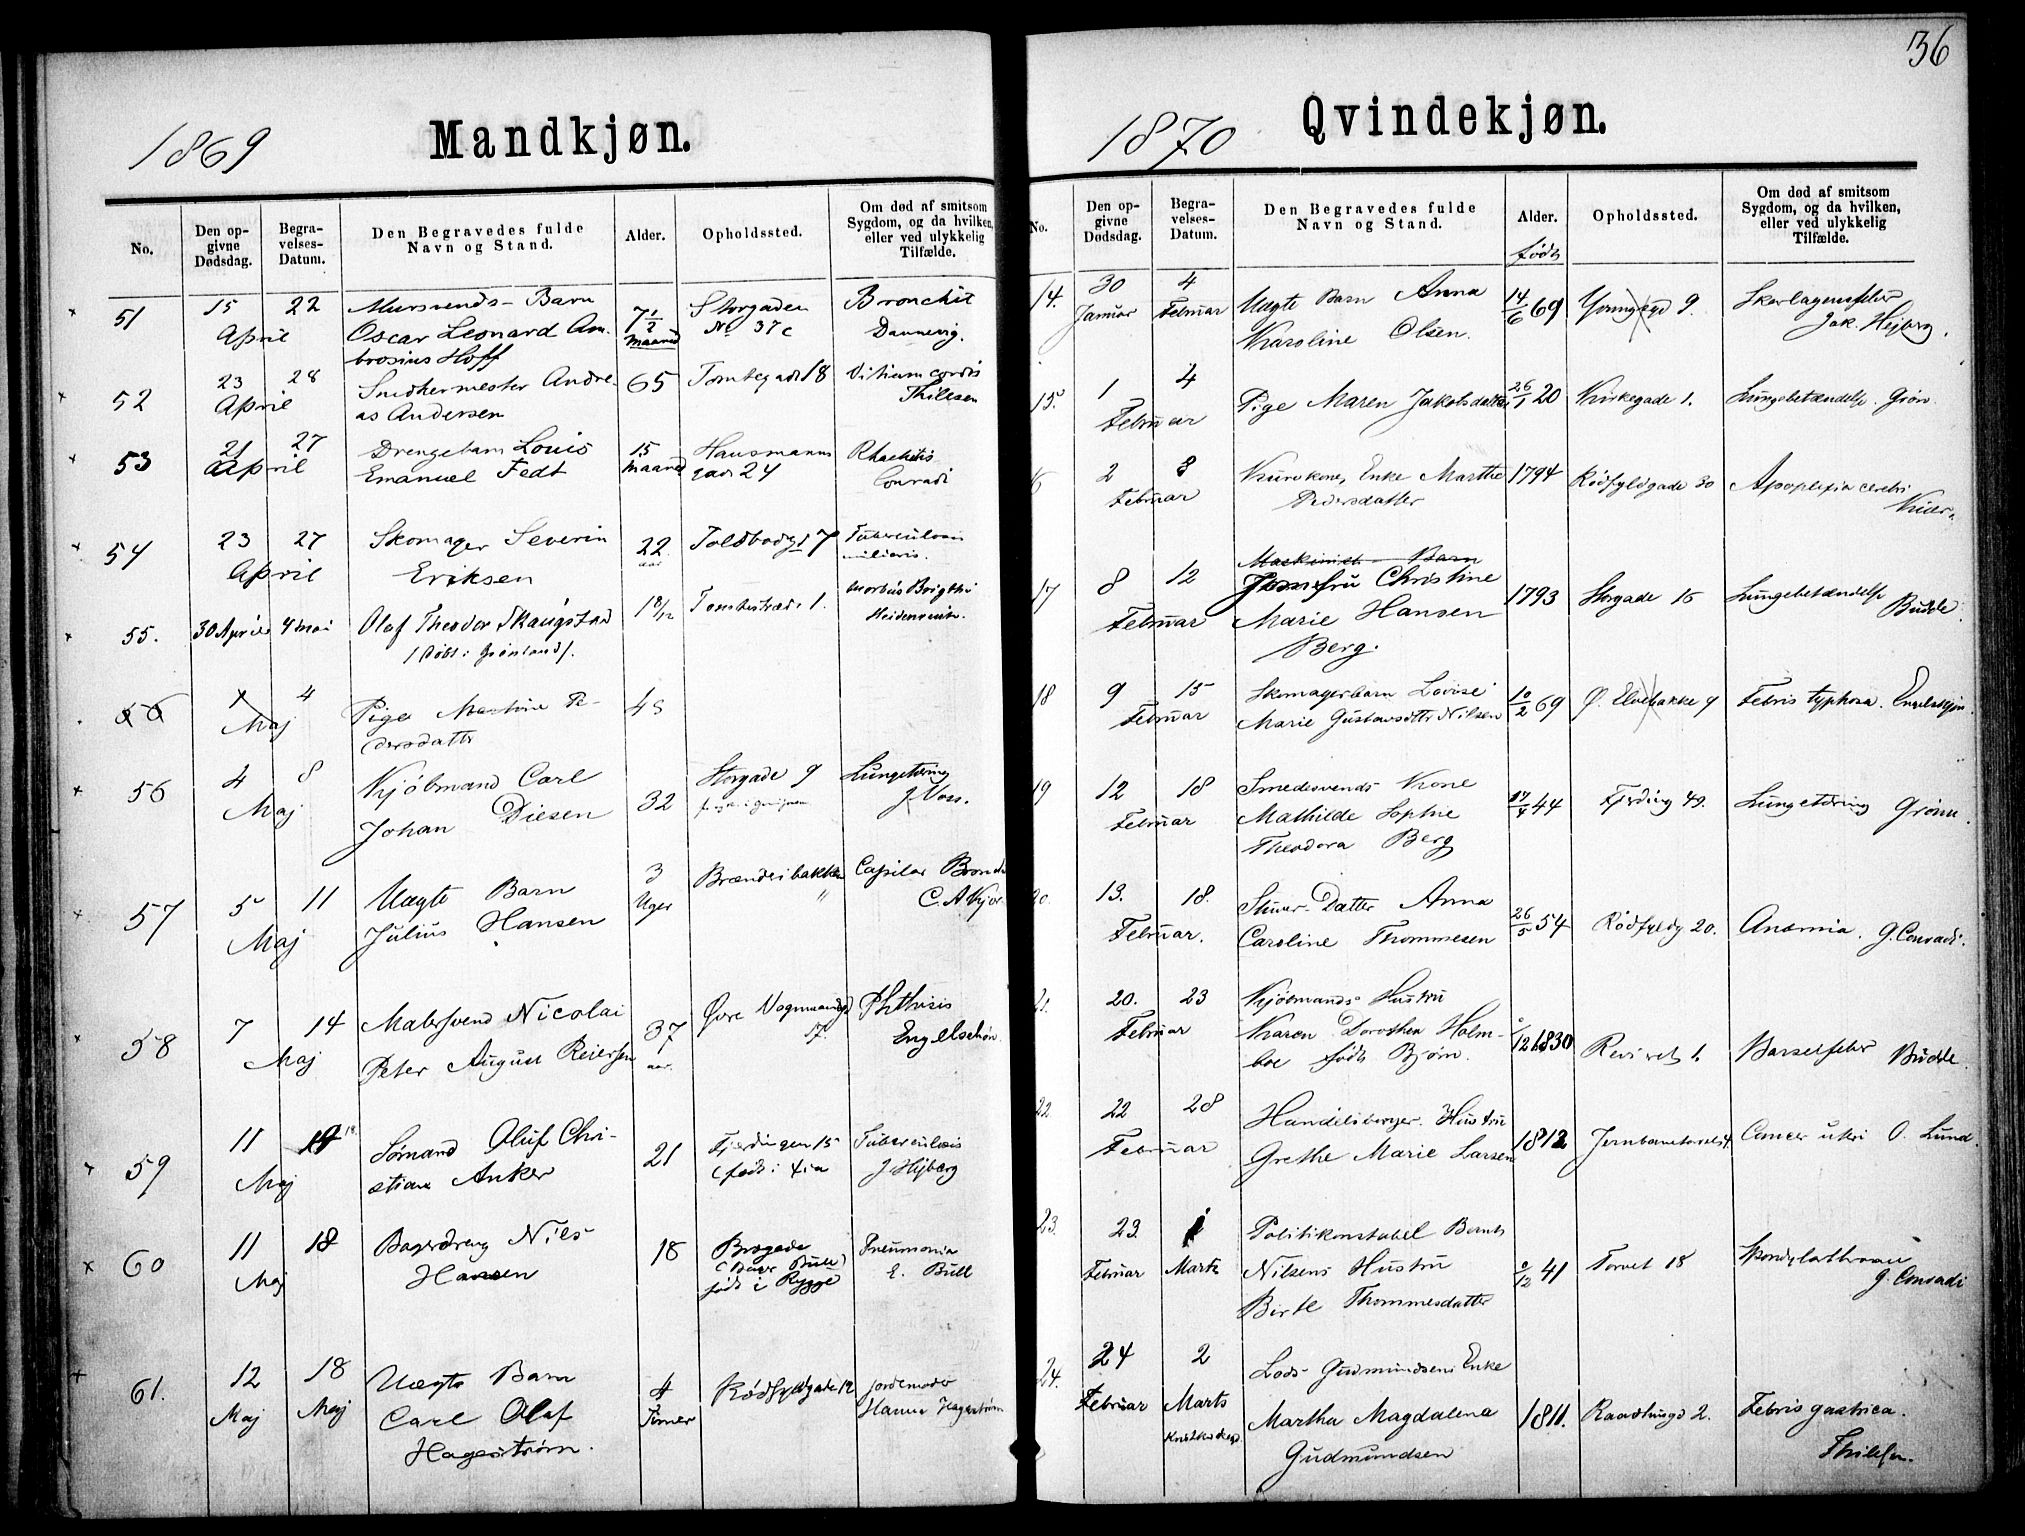 36
1869
Mandkjøn.
No.
Den opgivne Dødsdag.
Begravelses-Datum.
Den Begravedes fulde Navn og Stand.
Alder.
Opholdssted.
Om død af smitsom Sygdom, og da hvilken, eller ved ulykkelig Tilfælde.
51 15 22 Mursvends-Barn Storgaden Bronchit
April Oscar Leonard Am- 7 1/2 Maaned No 37c Dannevig.
brosius Hoff
52 23 28 Snedkermester Andre- 65 Tomtegade 18 Vitium cordis
April as Andersen Thilesen
53 21 27 Drengebarn Louis 15 Hausmanns Rhachitis
April Emanuel Fedt Maaned gade 24 Conradi
54 23 27 Skomager Severin 22 Toldbodgd 7 Tuberculosis
April Eriksen aar miliaris.
55. 30 April 4 Mai Olaf Theodor Skaugstad 1 8/12 Tomtestræde 1. Morbus Brigthii
(Døbt i Grønland). Heidenreich.
56 1 4 Pige Martine Pe- 45
Maj dersdatter
56 4 8 Kjøbmand Carl 32 Storgade 9 Lungetæring
Maj Johan Diesen J. Voss.
57 5 11 Uægte Barn 3 Brænderibakken Capilar Bronch
Maj Julius Hansen Uger " C. A Kjær
58 7 14 Malersvend Nicolai 37 Øvre Vognmandsgd Phthisis
Maj Peter August Reiersen aar. 17. Engelschøn
59 11 19 18. Sømand Oluf Chri- 21 Fjerdingen 15 Tuberculosis
Maj stian Anker (født i J. Hejberg
60 11 18 Bagerdreng Nils 18 Brogade Pneumonia
Maj Hansen (Bager Bull) E. Bull
født i Rygge
61. 12 18 Uægte Barn 4 Rødfyldgade 12 Jordemoder
Maj Maj Carl Olaf Timer Hanna Hagestrøm
Hagestrøm.
1870
Qvindekjøn.
No.
Den opgivne Dødsdag.
Begravelses-Datum.
Den Begravedes fulde Navn og Stand.
Alder.
født
Opholdssted.
Om død af smitsom Sygdom, og da hvilken, eller ved ulykkelig Tilfælde.
14. 30 4 Uægte Barn Anna 14/6 69 Youngsgd 9. Skarlagensfeber
Januar Februar Karoline Olsen. Jak. Hejberg.
15. 1 4 Pige Maren Jakobsdatter 26/1 20 Kirkegade 1. Lungebetændelse Grøn
Februar
6 2 8 Enke Marthe 1794 Rødfyldgade 30 Apoplexia cerebri
Februar Pedersdatter Kiær.
17 8 12 Maskinist Barn
Jomfru Christine 1793 Storgade 16 Lungebetændelse
Februar Marie Hansen Budde.
Berg.
18 9 15 Skomagerbarn Lovise 10/2 69 Ø. Elvebakke 9 Febris typhosa. Engelschjøn.
Februar Marie Gustavsdttr Nilsen
19 12 18 Smedesvends Kone 17/4 44 Fjerding 49. Lungetæring Grønn.
Februar Mathilde Sophie
Theodora Berg
20. 13. 18. Datter Anna 26/5 54 Rødfyldg 20. Anæmia. G. Conradi.
Februar. Caroline Thommesen
21. 20. 23 Kjøbmands Hustru
Februar Karen Dorothea Holm- 12 1830 Reviret 1. Barselfeber Budde.
boe født Bjørn.
22. 22 28 Handelsborger. Hustru
Februar Grethe Marie Larsen 1812 Jernbanetorvet 4. Cancer uteri O. Lund
23. 23. 1 Politikonstabel Bernts
Februar Marts Nilsens Hustru 9/12 41 Torvet 18 G. Conradi
Birte Thommesdatter
24. 24 2 Lods Gudmundsens Enke
Februar Marts Martha Magdalena 1811. Raadhusgd 2. Febris gastrica.
Gudmundsen Thilesen.